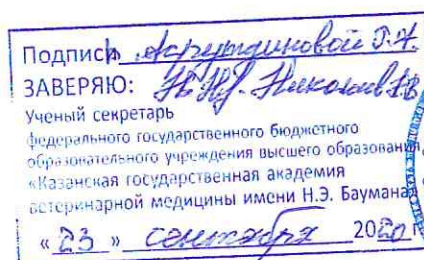 Подпись
ЗАВЕРЯЮ:
Ученый секретарь
федерального государственного бюджетного
образовательного учреждения высшего образования
«Казанская государственная академия
ветеринарной медицины имени Н.Э. Баумана»
« 23 » сентября 2020 г